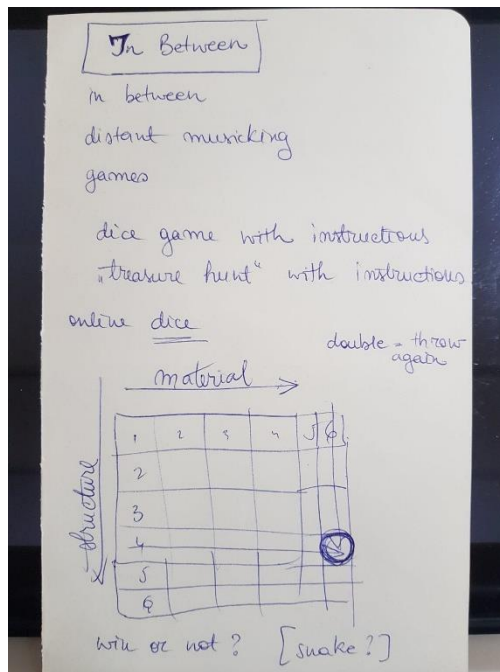 In Between
in between
distant musicking
games
dice game with instructions
„treasure hunt“ with instructions
online dice
double = throw
again
material
structure
1 2 3 4 5 6
2
3
4
5
6
win or not? [snake?]